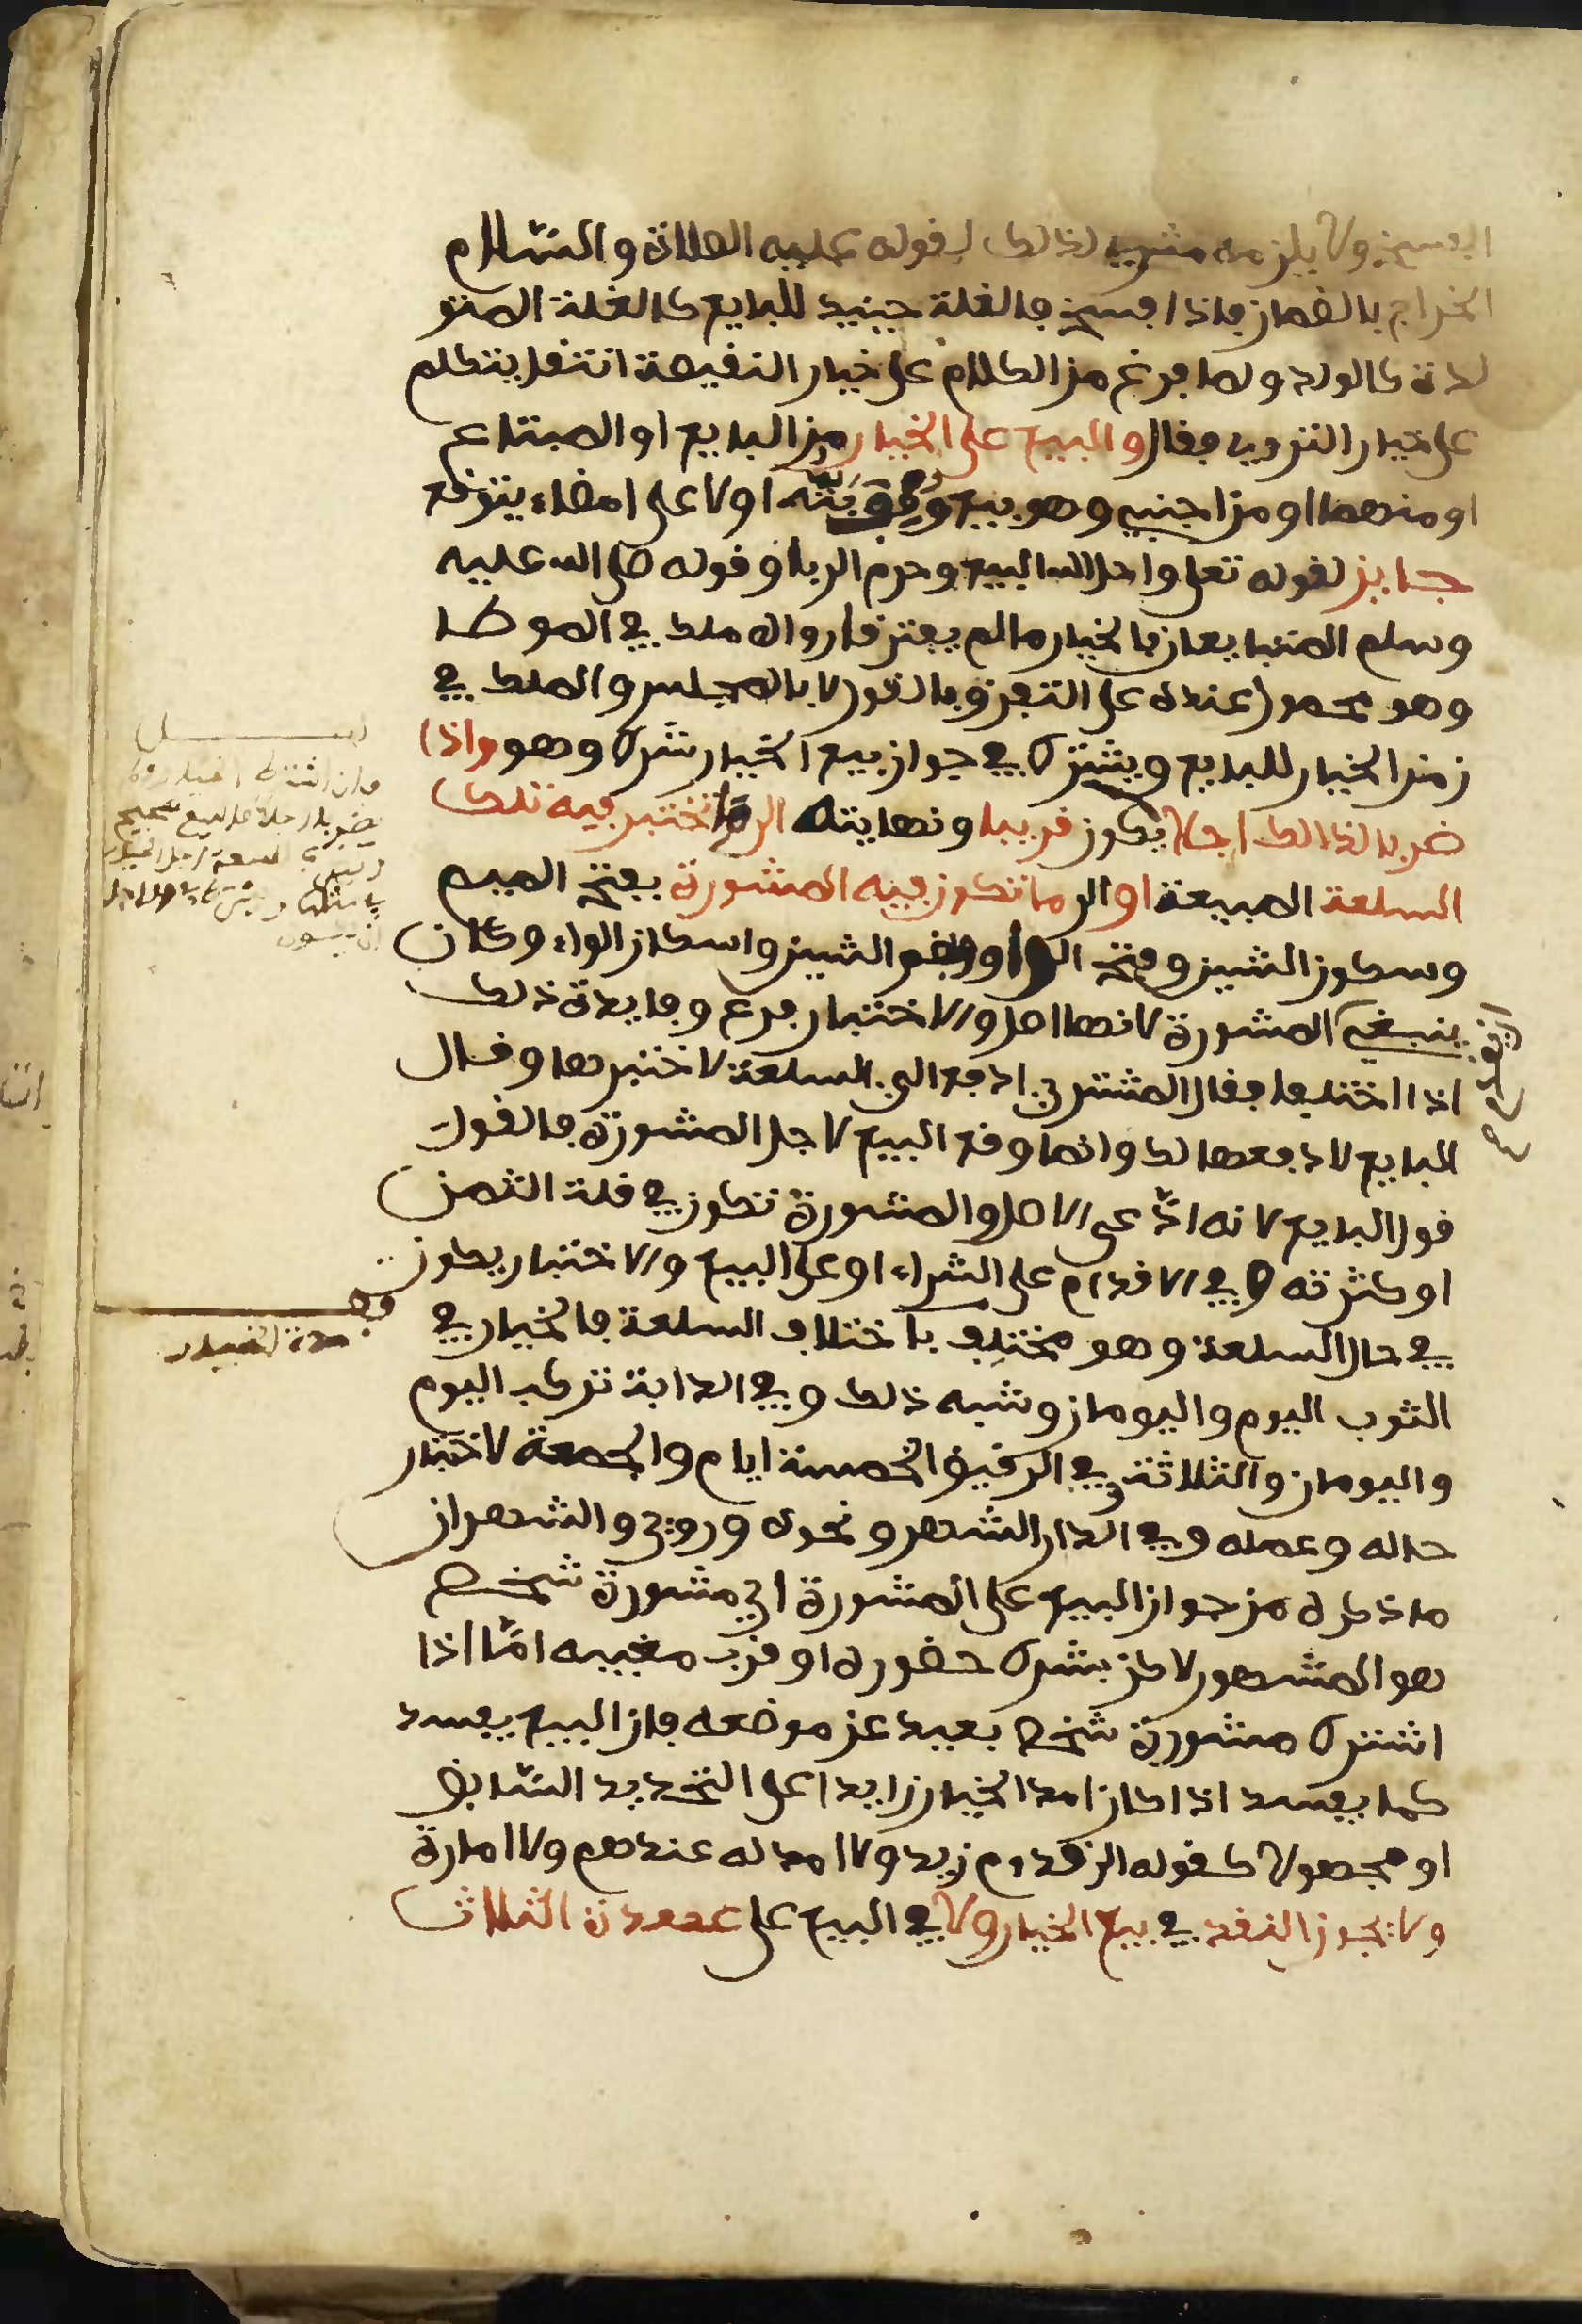 الفسخ ولا يلزمه شيء لذالك لقوله عليه الصلاة والسلام
الخراج بالضمان فاذا فسخ فالغلة حينيد للبايع كالغلة المتو
لدة كالولد ولما فرغ من الكلام على خيار النقيصة انتقل يتكلم
على خيار التروي فقال والبيع على الخيار من البايع او المبتاع
او منهما او من اجنبي وهو بيع وقف بته اولا على امضاء يتوقع
جايز لقوله تعلى واحل الله البيع وحرم الربا وقوله صلى الله عليه
وسلم المتبايعان بالخيار ما لم يفترقا رواه ملك في الموطا
وهو محمول عنده على التفرق بالقول لا بالمجلس والملك في
زمن الخيار للبايع ويشترط في جواز بيع الخيار شرط وهو واذا
ضربا لذالك اجلا يكون قريبا ونهايته الى ما تختبر فيه تلك
السلعة المبيعة او الى ما تكون فيه المشورة بفتح الميم
وسكون الشين وفتح الواو وضم الشين واسكان الواو وكان
ينبغي المشورة لانها اصل والاختبار فرع وفايدة ذلك
اذا اختلفا فقال المشتري ادفع الي السلعة لاختبرها وقال
البايع لا ادفعها لك وانما وقع البيع لاجل المشورة فالقول
قول البايع لانه ادعى الاصل والمشورة تكون في قلة الثمن
او كثرته وفي الاقدام على الشراء او على البيع والاختبار يكون
في حال السلعة وهو مختلف باختلاف السلعة فالخيار في
الثوب اليوم واليومان وشبه ذلك وفي الدابة تركب اليوم
واليومان والثلاثة وفي الرقيق الخمسة ايام والجمعة لاختبار
حاله وعمله وفي الدار الشهر ونحوه وروي والشهران
ما ذكره من جواز البيع على المشورة اي مشورة شخص
هو المشهور لاكن بشرط حضوره او قرب مغيبه اما اذا
اشترط مشورة شخص بعيد عن موضعه فان البيع يفسد
كما يفسد اذا كان امد الخيار زايدا على التحديد السابق
او مجهولا كقوله الى قدوم زيد ولا امد له عندهم ولا امارة
ولا يجوز النقد في بيع الخيار ولا في البيع على عهدة الثلاث
تقديم
وان اشترط الخيار ولم
يضربا اجلا فالبيع صحيح
مدة الخيار